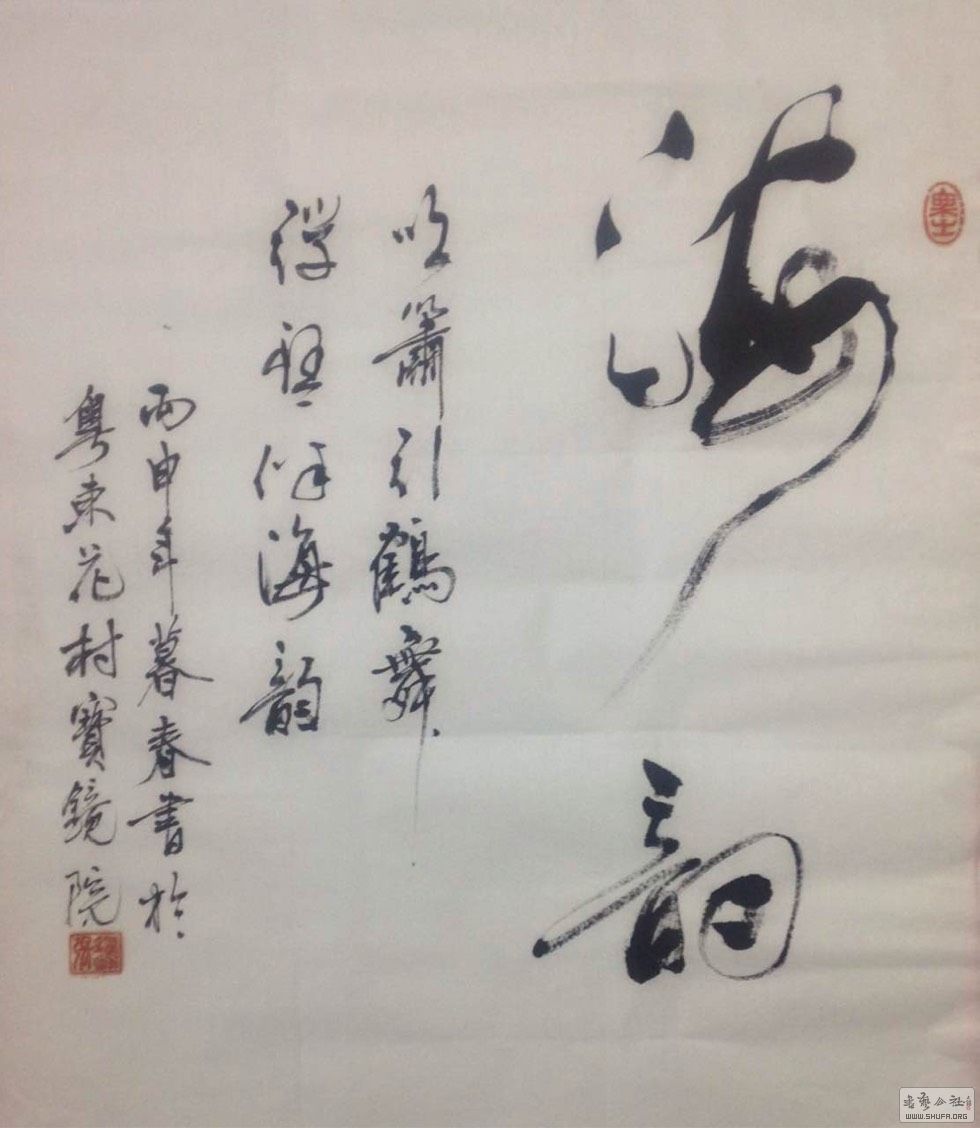 海韵
吹箫引鹤舞
弹琴伴海韵
丙申年暮春書於
粤東花村寶鏡院
書藝公社
WWW.SHUFA.ORG